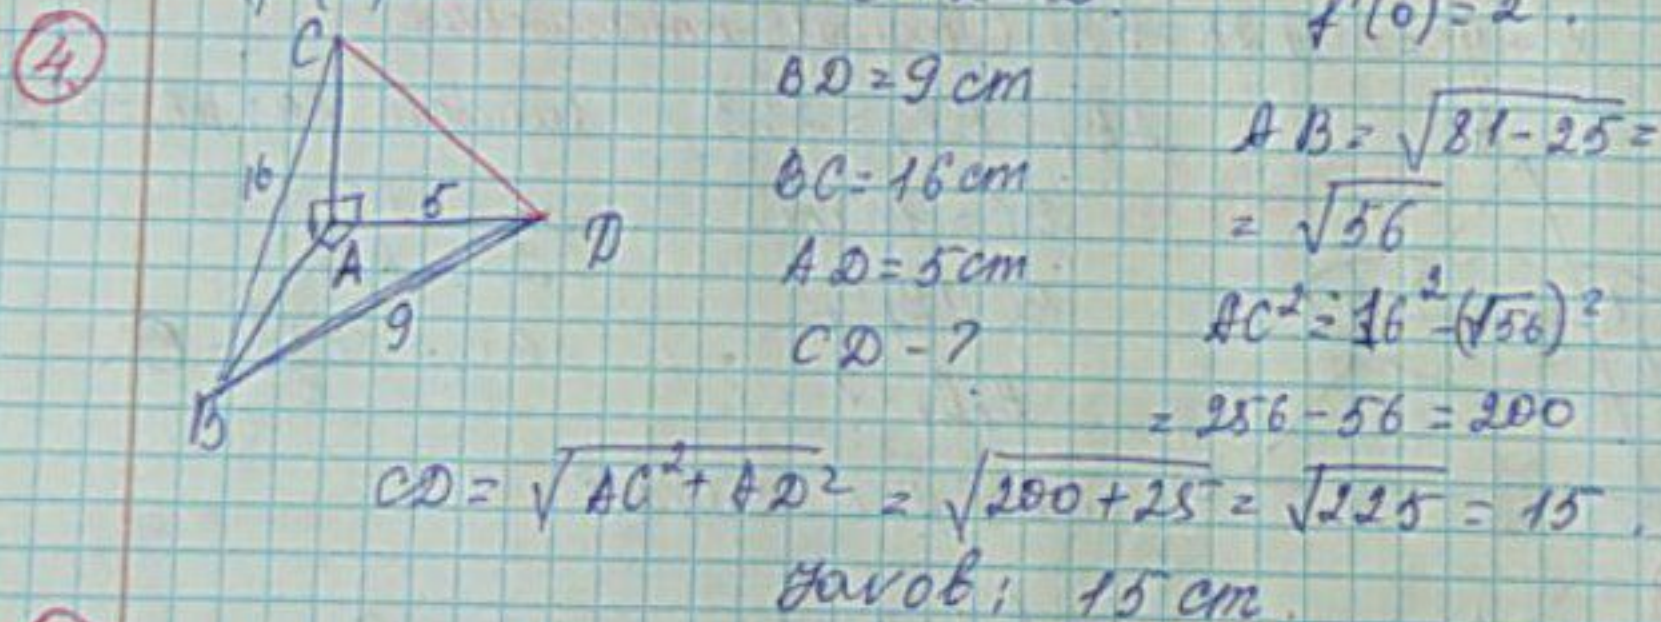 f'(0) = 2.
4.
C
16
5
A
D
9
B
BD = 9 cm
BC = 16 cm
AD = 5 cm
CD - ?
AB = √81-25 =
= √56
AC² = 16² - (√56)²
= 256 - 56 = 200
CD = √AC² + AD² = √200+25 = √225 = 15.
Javob: 15 cm.